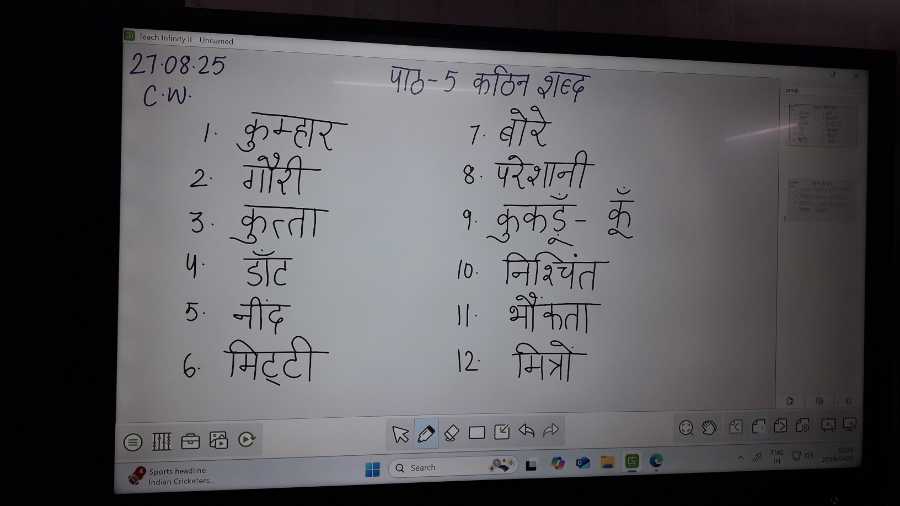 Teach Infinity II - Unnamed
27.08.25
C.W.
पाठ-5 कठिन शब्द
1. कुम्हार
2. गौरी
3. कुत्ता
4. डाँट
5. नींद
6. मिट्टी
7. बोरे
8. परेशानी
9. कुकड़ूँ - कूँ
10. निश्चिंत
11. भौंकता
12. मित्रों
Sports headline
Indian Cricketers...
Search